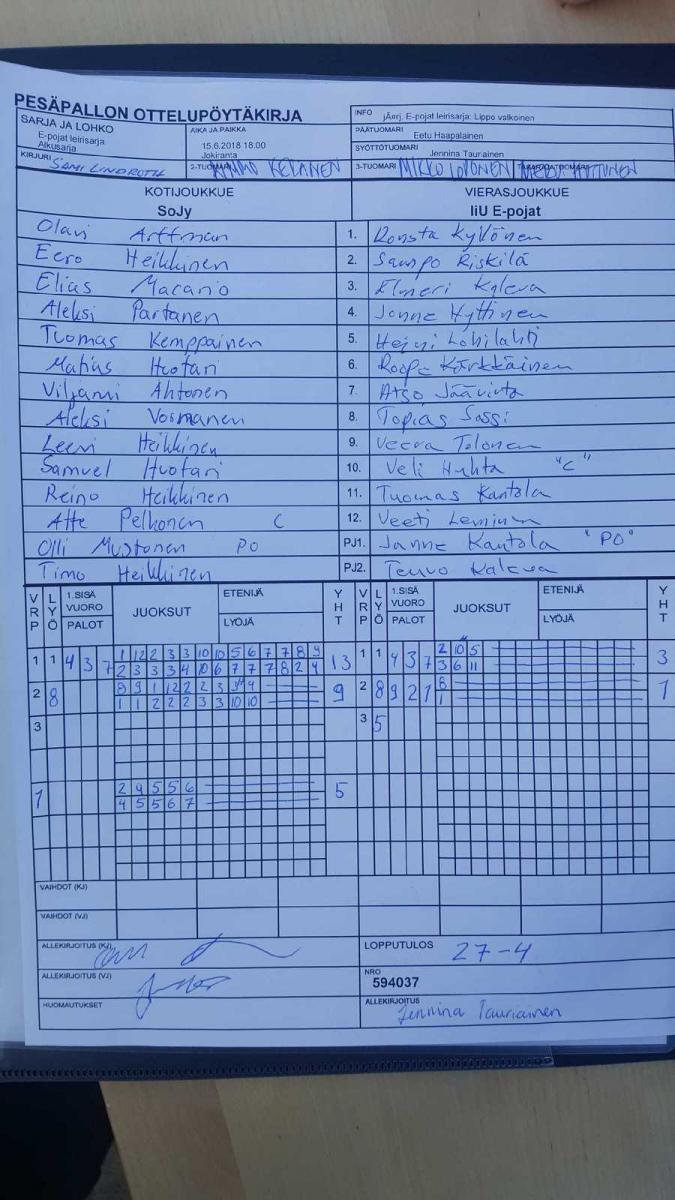 PESÄPALLON OTTELUPÖYTÄKIRJA
SARJA JA LOHKO
E-pojat leirisarja
Alkusarja
AIKA JA PAIKKA
15.6.2018 18.00
Jokiranta
INFO jÄrj. E-pojat leirisarja: Lippo valkoinen
PÄÄTUOMARI Eetu Haapalainen
SYÖTTÖTUOMARI Jennina Taurainen
KIRJURI SAMI LINDROTH
2-TUOMARI KELANEN
3-TUOMARI MIKKO LOVONEN
KOTIJOUKKUE
SoJy
VIERASJOUKKUE
IiU E-pojat
Olavi Arffman 1. Konsta Kyllönen
Eero Heikkinen 2. Sampo Riskilä
Elias Macario 3. Elmeri Kaleva
Aleksi Partanen 4. Jonne Hyttinen
Tuomas Kemppainen 5. Heini Lohilahti
Matias Huotari 6. Roope Kärkkäinen
Viljami Ahtonen 7. Atso Jäävirta
Aleksi Vormanen 8. Topias Sassi
Leevi Heikkinen 9. Veera Tolonen
Samuel Huotari 10. Veli Huhta "C"
Reino Heikkinen 11. Tuomas Kantola
Atte Pelkonen C 12. Veeti Leminen
Olli Mustonen PO PJ1. Janne Kantola "PO"
Timo Heikkinen PJ2. Teuvo Kaleva
VRP LYÖ 1.SISÄ VUORO PALOT JUOKSUT ETENIJÄ LYÖJÄ YHT VRP LYÖ 1.SISÄ VUORO PALOT JUOKSUT ETENIJÄ LYÖJÄ YHT
1 1 4 3 7 1 12 2 3 3 10 10 5 6 7 7 8 9 13 1 1 9 3 7 2 10 5 3
2 3 3 3 4 10 6 7 7 7 8 2 4 3 6 11
2 8 8 9 1 12 2 2 3 3 4 9 2 8 9 2 1 8 1
1 1 2 2 2 3 3 10 10 1
3 3 5
1 2 4 5 5 6 5
4 5 5 6 7
VAIHDOT (KJ)
VAIHDOT (VJ)
ALLEKIRJOITUS (KJ)
LOPPUTULOS 27-4
ALLEKIRJOITUS (VJ)
NRO
594037
HUOMAUTUKSET
ALLEKIRJOITUS
Jennina Tauriainen